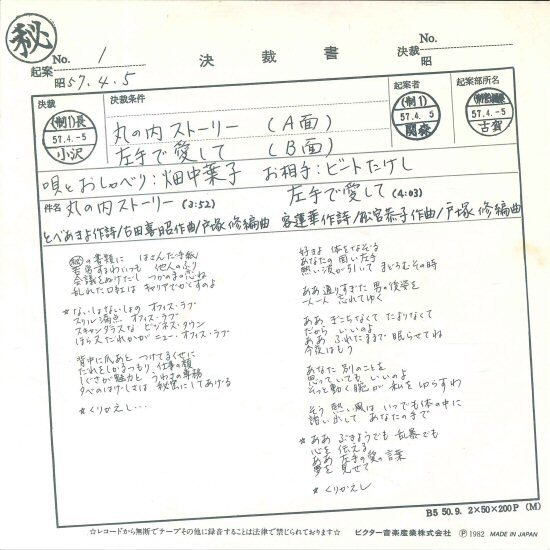 ㊙
No. 1
決裁書
No.
起案
昭57.4.5
決裁
昭
決裁
(制1)長
57.4.-5
小沢
決裁条件
丸の内ストーリー (A面)
左手で愛して (B面)
起案者
(制1)
57.4.-5
関森
起案部所名
57.4.-5
古賀
唄とおしゃべり:畑中葉子 お相手:ビートたけし
件名 丸の内ストーリー (3:52)
左手で愛して (4:03)
とべあきよ作詩/古田喜昭作曲/戸塚修編曲
客蓮華作詩/松宮恭子作曲/戸塚修編曲
㊙の書類に はさんだ手紙
他人のふり
会議をぬけだし つかのまの恋ね
乱れた口紅は キャリアでかくすのよ
★ないしょないしょの オフィス・ラブ
スリル満点 オフィス・ラブ
スキャンダラスな ビジネス・タウン
ほらまただれかが ニュー・オフィス・ラブ
背中に爪あと つけてるくせに
だれとしるかつもり 仕事の顔
しぐさが魅力と うわさの専務
夕べのはげしさは 秘密にしてあげる
★くりかえし…
好きよ 体をなぞる
あなたの 聞いた左手
熱い波が引いて まどろむその時
ああ 通りすぎた 男の後姿を
一人一人 忘れてゆく
ああ ぎこちなくて たよりなくて
だから いいのよ
ああ ふれたままで 眠らせてね
今夜はもう
あなた 別のことを
思っていても いいのよ
そっと動く腕が 私をゆらすわ
そう 熱い風は いつでも体の中に
誘い出して あなたの手で
★ああ ぶきようでも 乱暴でも
心を伝える
ああ 左手の愛の言葉
夢を見せて
★くりかえし
B5 50.9. 2×50×200P (M)
☆レコードから無断でテープその他に録音することは法律で禁じられております☆
ビクター音楽産業株式会社 Ⓟ 1982 MADE IN JAPAN